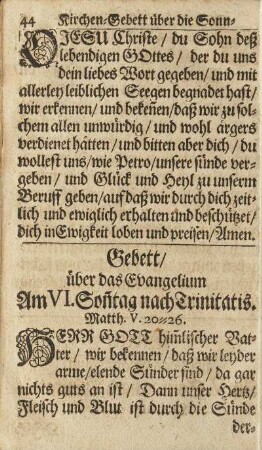 44 Kirchen-Gebett über die Sonn-
O JESU Christe / du Sohn deß
lebendigen GOttes / der du uns
dein liebes Wort gegeben / und mit
allerley leiblichen Seegen begnadet hast /
wir erkennen / und bekeñen / daß wir zu sol-
chem allen unwürdig / und wohl ärgers
verdienet hätten / und bitten aber dich / du
wollest uns / wie Petro / unsere sünde ver-
geben / und Glück und Heyl zu unserm
Beruff geben / auf daß wir durch dich zeit-
lich und ewiglich erhalten und beschützet /
dich in Ewigkeit loben und preisen / Amen.
Gebett /
über das Evangelium
Am VI. Soñtag nach Trinitatis.
Matth. V. 20=26.
HERR GOTT him̃lischer Vat-
ter / wir bekennen / daß wir leyder
arme / elende Sünder sind / da gar
nichts guts an ist / Dann unser Hertz /
Fleisch und Blut ist durch die Sünde
der-